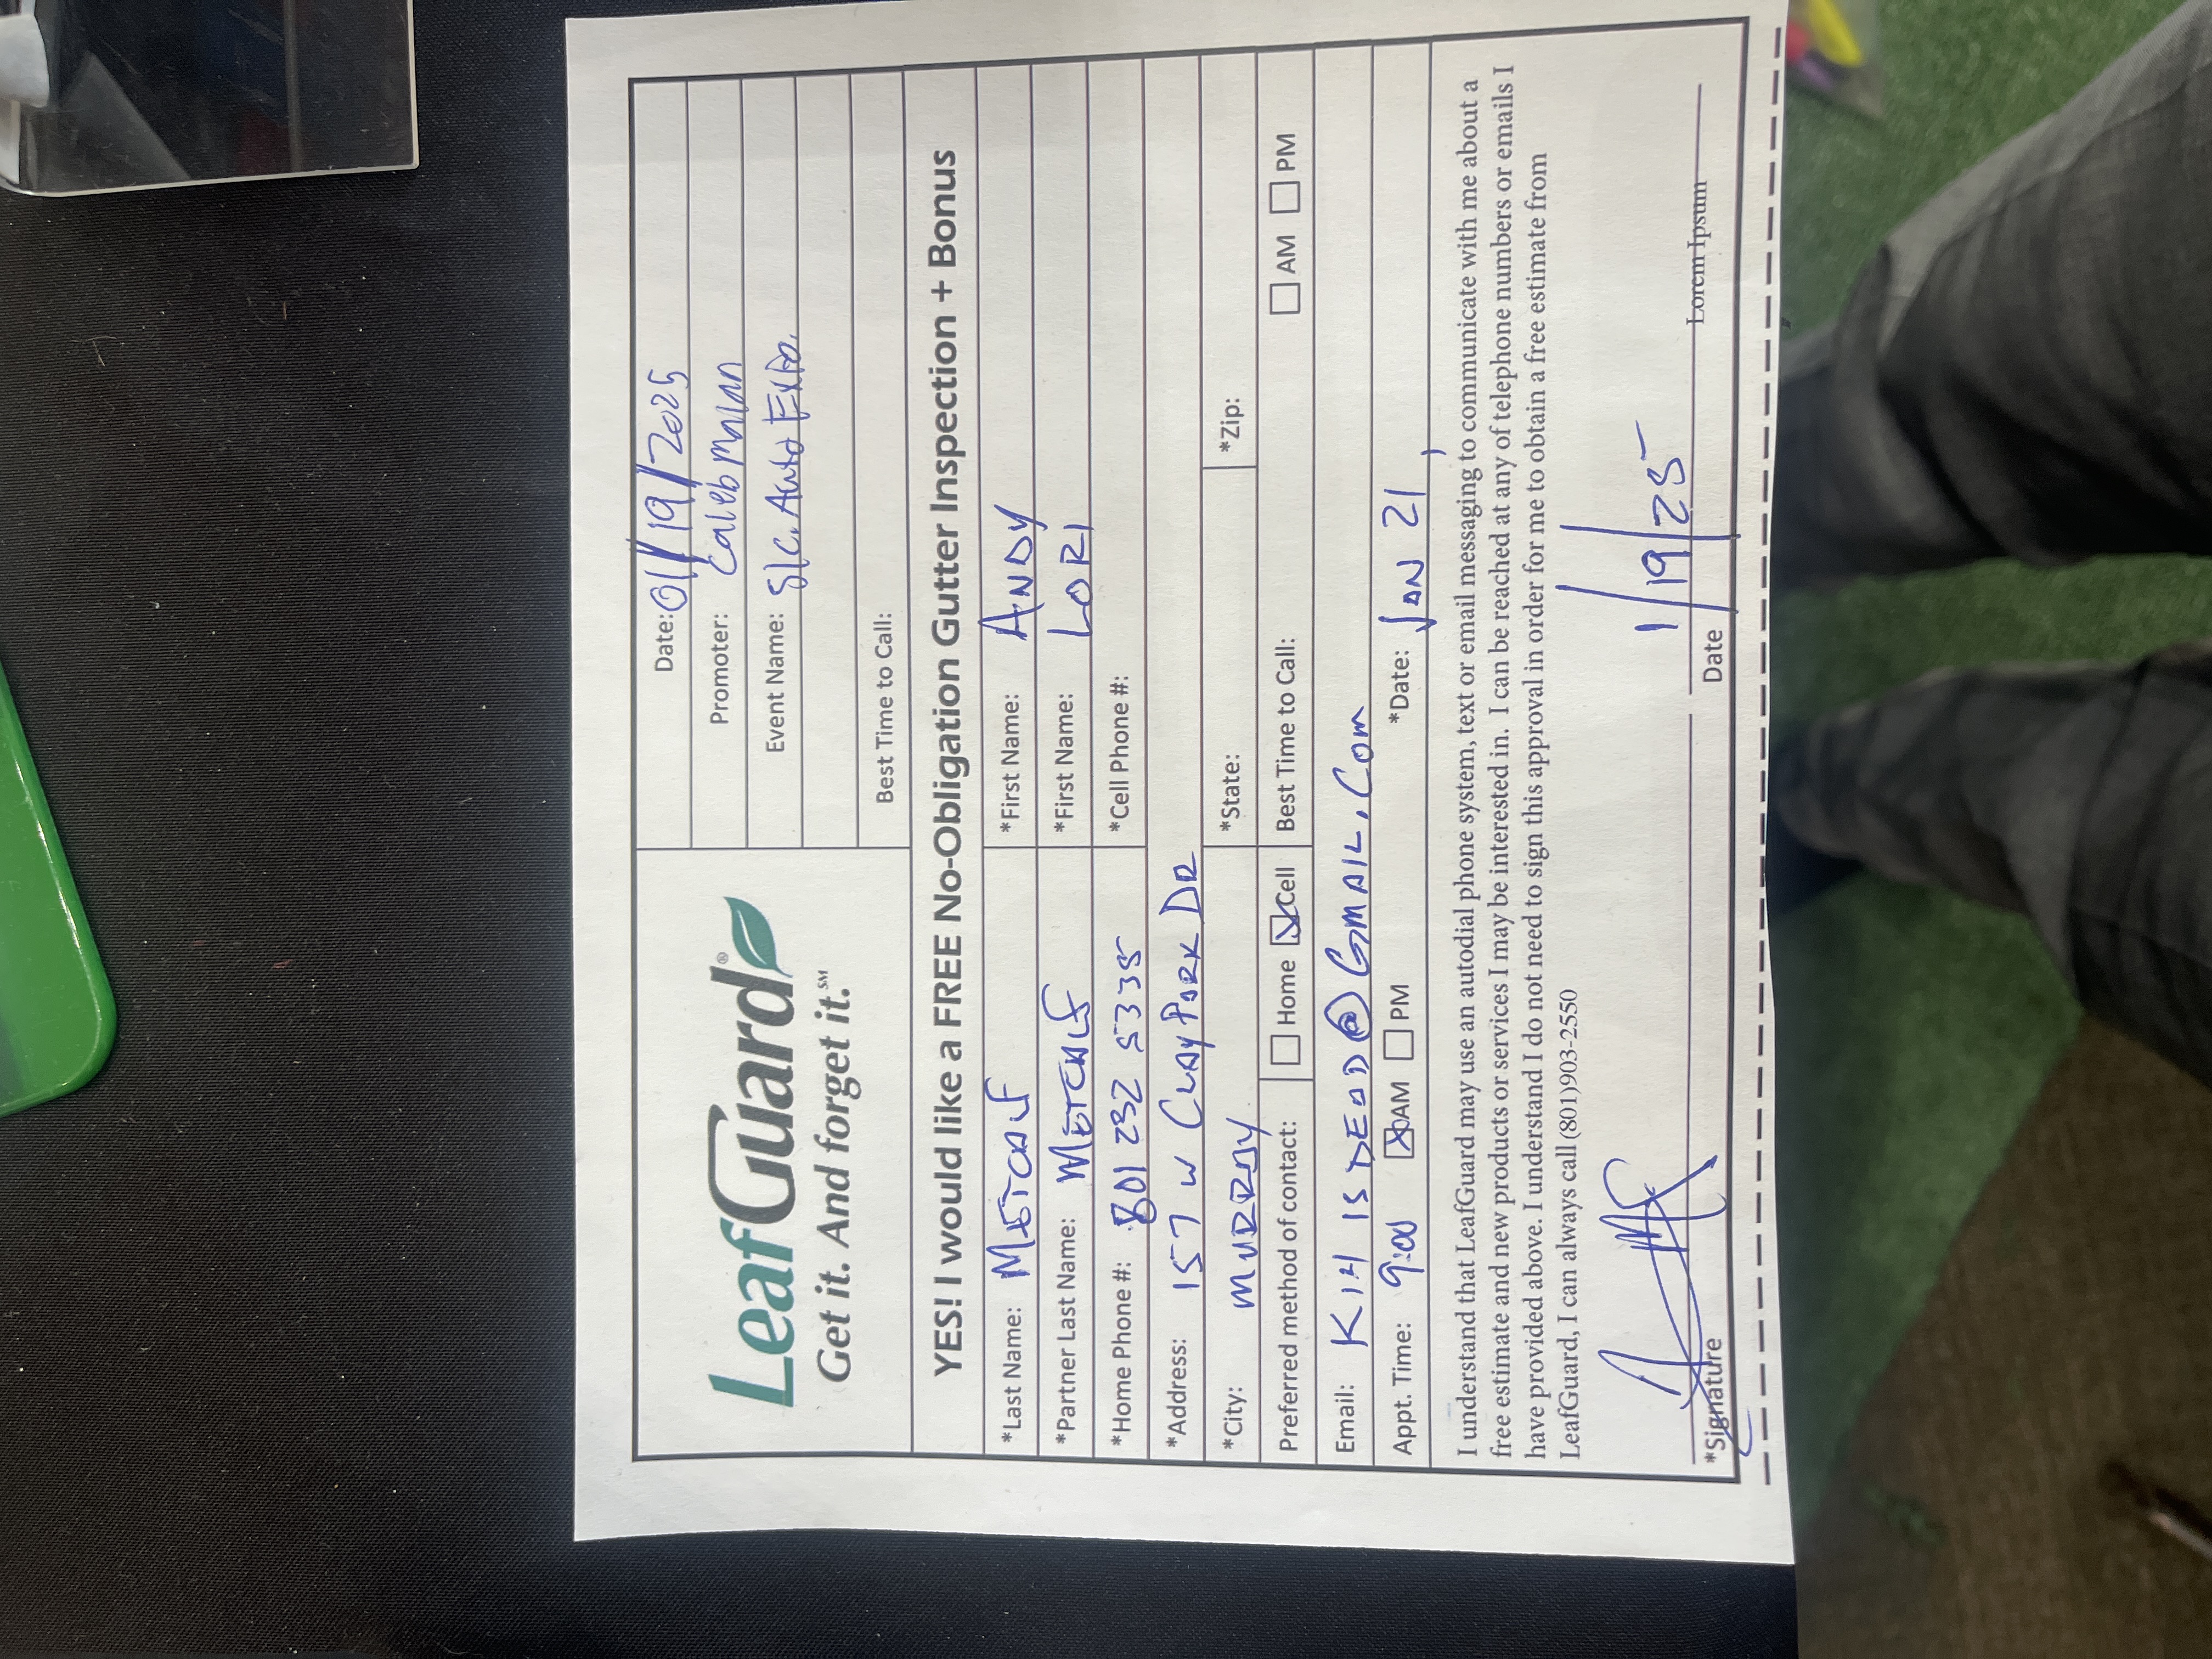 LeafGuard®
Get it. And forget it.℠
Date: 01/19/2025
Promoter: Caleb Malan
Event Name: S/C. Auto Expo.
Best Time to Call:
YES! I would like a FREE No-Obligation Gutter Inspection + Bonus
*Last Name: METCALF *First Name: ANDY
*Partner Last Name: METCALF *First Name: LORI
*Home Phone #: 801 232 5335 *Cell Phone #:
*Address: 157 W CLAY PARK DR
*City: MURRAY *State: *Zip:
Preferred method of contact: Home Cell Best Time to Call: AM PM
Email: IS DEAD@GMAIL.COM
Appt. Time: 9:00 AM PM *Date: JAN 21,
I understand that LeafGuard may use an autodial phone system, text or email messaging to communicate with me about a
free estimate and new products or services I may be interested in. I can be reached at any of telephone numbers or emails I
have provided above. I understand I do not need to sign this approval in order for me to obtain a free estimate from
LeafGuard, I can always call (801)903-2550
1/19/25
*Signature Date Lorem Ipsum